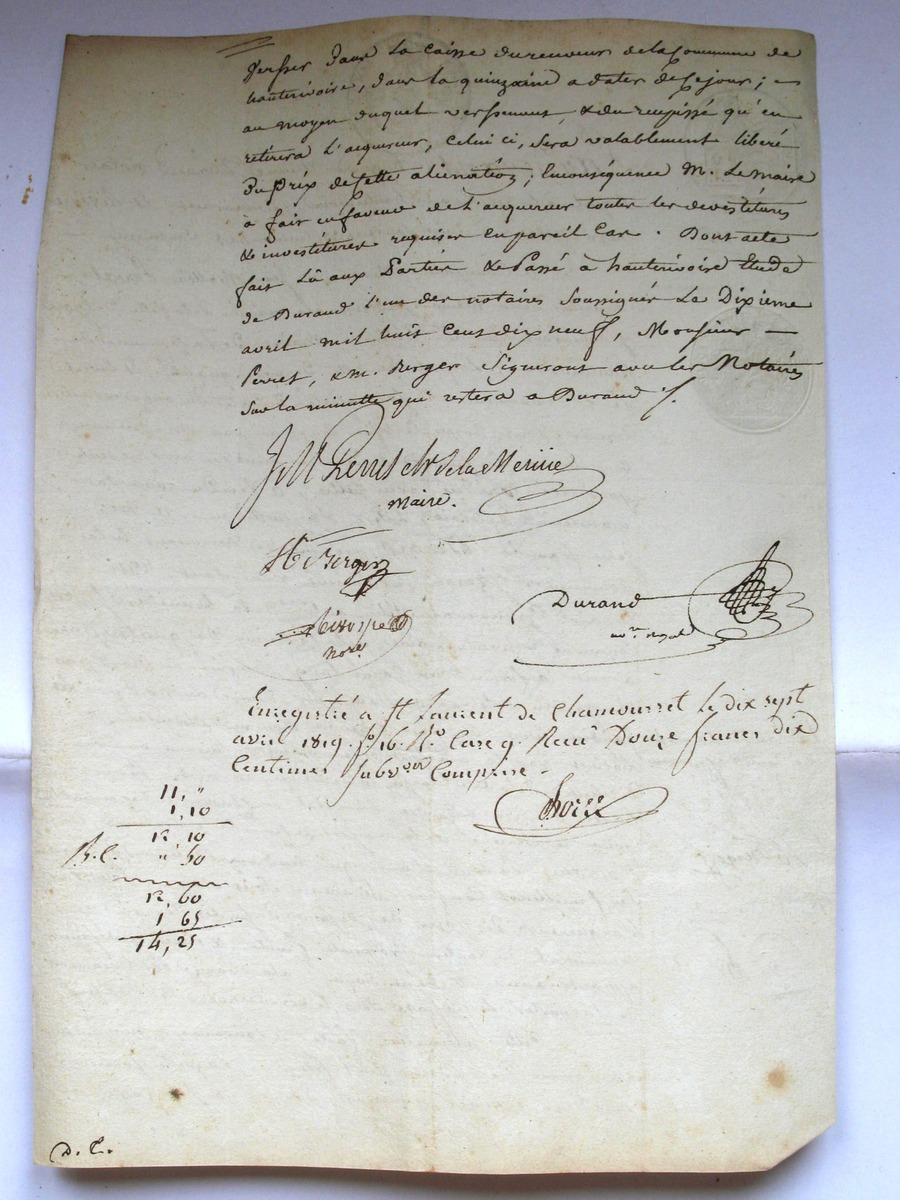 Verser dans la Caisse du receveur de la Commune de
hauterivoire, dans la quinzaine a dater de ce jour ; =
au moyen duquel versement, & du recépissé qu'en
retirera l'acquereur, celui ci, sera valablement libéré
Du prix de cette aliénation ; En conséquence M. Le maire
à fait en faveur de l'acquereur toutes les devestitures
& investitures requises en pareil Cas . Dont acte
fait lû aux Parties & Passé à hauterivoire Etude
de Durand l'un des notaires soussignés Le Dixieme
avril mil huit Cent dix neuf, Monsieur —
Perret, & m. Berger Signeront avec les Notaires
Sur la minutte qui restera a Durand /.
J M Perret ch.r de la Menue
maire.
Berger
nore.
Durand
no.re royal
Enregistré a St Laurent de Chamousset le dix sept
avril 1819. fo. 16. Ro. Case 9. Recu Douze francs dix
Centimes Subv.on Comprise -
11, "
1, 10
12 10
B. C. " 50
12, 60
1 65
14, 25
D. C.